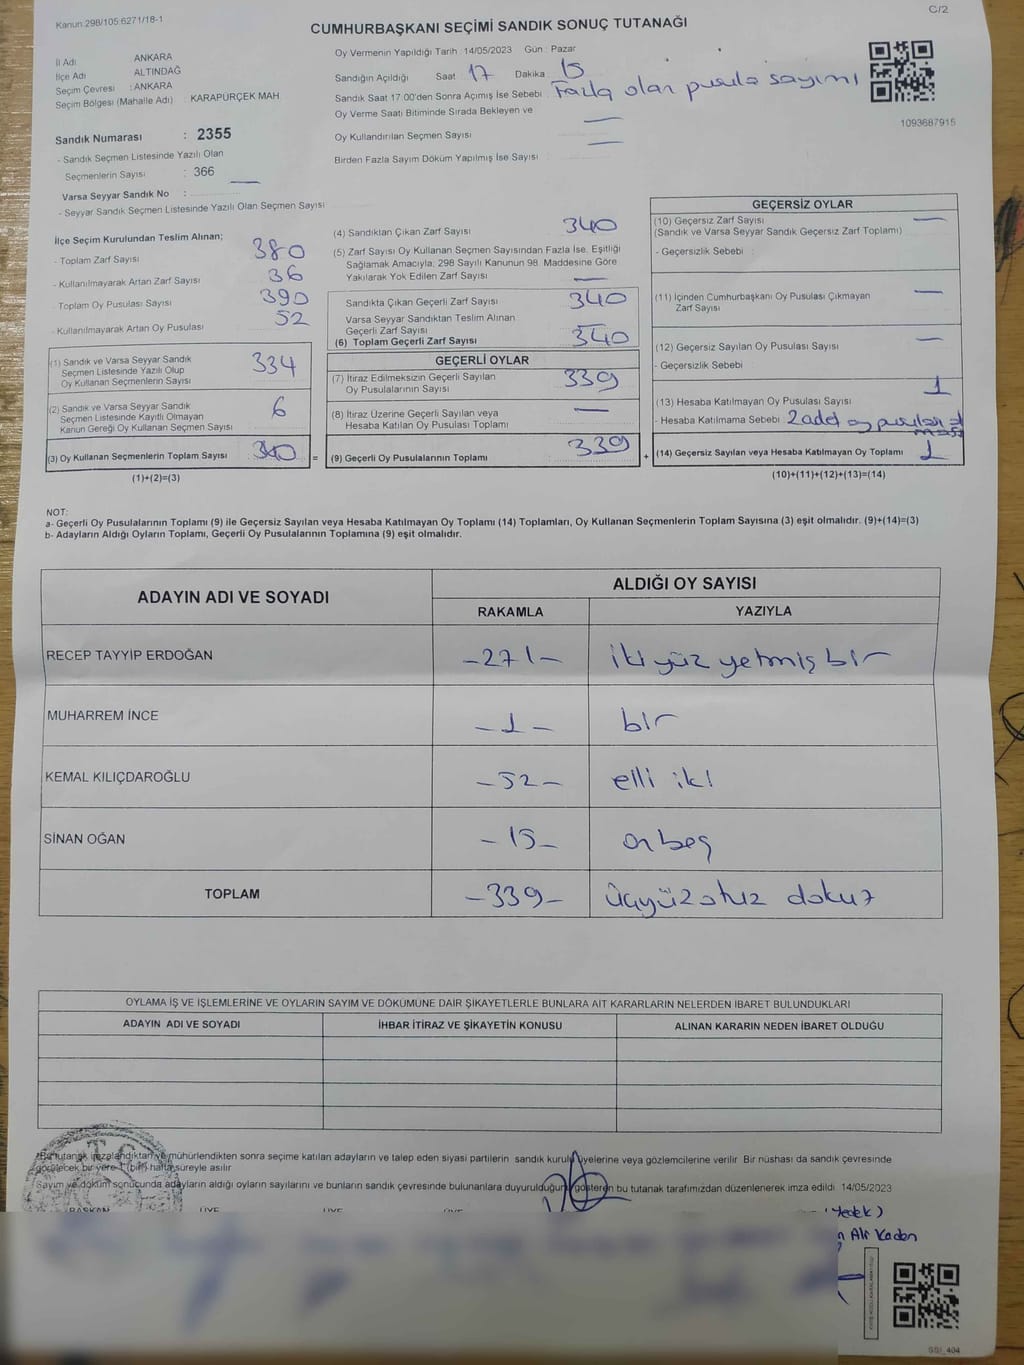 Kanun:298/105;6271/18-1
C/2
CUMHURBAŞKANI SEÇİMİ SANDIK SONUÇ TUTANAĞI
İl Adı ANKARA
İlçe Adı ALTINDAĞ
Seçim Çevresi : ANKARA
Seçim Bölgesi (Mahalle Adı) KARAPÜRÇEK MAH.
Sandık Numarası : 2355
- Sandık Seçmen Listesinde Yazılı Olan
Seçmenlerin Sayısı : 366
Varsa Seyyar Sandık No : —
- Seyyar Sandık Seçmen Listesinde Yazılı Olan Seçmen Sayısı :
Oy Vermenin Yapıldığı Tarih : 14/05/2023 Gün : Pazar
Sandığın Açıldığı Saat 17 Dakika 15
Sandık Saat 17:00'den Sonra Açılmış İse Sebebi : Fazla olan pusula sayımı
Oy Verme Saati Bitiminde Sırada Bekleyen ve
Oy Kullandırılan Seçmen Sayısı —
Birden Fazla Sayım Döküm Yapılmış İse Sayısı : —
1093687915
İlçe Seçim Kurulundan Teslim Alınan;
- Toplam Zarf Sayısı 380
- Kullanılmayarak Artan Zarf Sayısı 36
- Toplam Oy Pusulası Sayısı 390
- Kullanılmayarak Artan Oy Pusulası 52
(1) Sandık ve Varsa Seyyar Sandık
Seçmen Listesinde Yazılı Olup
Oy Kullanan Seçmenlerin Sayısı 334
(2) Sandık ve Varsa Seyyar Sandık
Seçmen Listesinde Kayıtlı Olmayan
Kanun Gereği Oy Kullanan Seçmen Sayısı 6
(3) Oy Kullanan Seçmenlerin Toplam Sayısı 340
(1)+(2)=(3)
(4) Sandıktan Çıkan Zarf Sayısı 340
(5) Zarf Sayısı Oy Kullanan Seçmen Sayısından Fazla İse, Eşitliği
Sağlamak Amacıyla; 298 Sayılı Kanunun 98. Maddesine Göre
Yakılarak Yok Edilen Zarf Sayısı —
Sandıkta Çıkan Geçerli Zarf Sayısı 340
Varsa Seyyar Sandıktan Teslim Alınan
Geçerli Zarf Sayısı
(6) Toplam Geçerli Zarf Sayısı 340
GEÇERLİ OYLAR
(7) İtiraz Edilmeksizin Geçerli Sayılan
Oy Pusulalarının Sayısı 339
(8) İtiraz Üzerine Geçerli Sayılan veya
Hesaba Katılan Oy Pusulası Toplamı —
= (9) Geçerli Oy Pusulalarının Toplamı 339 +
GEÇERSİZ OYLAR
(10) Geçersiz Zarf Sayısı —
(Sandık ve Varsa Seyyar Sandık Geçersiz Zarf Toplamı)
- Geçersizlik Sebebi :
(11) İçinden Cumhurbaşkanı Oy Pusulası Çıkmayan —
Zarf Sayısı
(12) Geçersiz Sayılan Oy Pusulası Sayısı —
- Geçersizlik Sebebi
(13) Hesaba Katılmayan Oy Pusulası Sayısı 1
- Hesaba Katılmama Sebebi : 2 adet oy pusulası
(14) Geçersiz Sayılan veya Hesaba Katılmayan Oy Toplamı 1
(10)+(11)+(12)+(13)=(14)
NOT:
a- Geçerli Oy Pusulalarının Toplamı (9) ile Geçersiz Sayılan veya Hesaba Katılmayan Oy Toplamı (14) Toplamları, Oy Kullanan Seçmenlerin Toplam Sayısına (3) eşit olmalıdır. (9)+(14)=(3)
b- Adayların Aldığı Oyların Toplamı, Geçerli Oy Pusulalarının Toplamına (9) eşit olmalıdır.
ADAYIN ADI VE SOYADI ALDIĞI OY SAYISI
RAKAMLA YAZIYLA
RECEP TAYYİP ERDOĞAN -271- iki yüz yetmiş bir
MUHARREM İNCE -1- bir
KEMAL KILIÇDAROĞLU -52- elli iki
SİNAN OĞAN -15- onbeş
TOPLAM -339- üçyüz otuz dokuz
OYLAMA İŞ VE İŞLEMLERİNE VE OYLARIN SAYIM VE DÖKÜMÜNE DAİR ŞİKAYETLERLE BUNLARA AİT KARARLARIN NELERDEN İBARET BULUNDUKLARI
ADAYIN ADI VE SOYADI İHBAR İTİRAZ VE ŞİKAYETİN KONUSU ALINAN KARARIN NEDEN İBARET OLDUĞU
*Bu tutanak imzalandıktan ve mühürlendikten sonra seçime katılan adayların ve talep eden siyasi partilerin sandık kurulu üyelerine veya gözlemcilerine verilir. Bir nüshası da sandık çevresinde
görülecek bir yere 1 (bir) hafta süreyle asılır.
Sayım ve döküm sonucunda adayların aldığı oyların sayılarını ve bunların sandık çevresinde bulunanlara duyurulduğunu gösteren bu tutanak tarafımızdan düzenlenerek imza edildi. 14/05/2023
BAŞKAN ÜYE ÜYE ÜYE
(Yedek)
Ali Kaden
SSİ_404